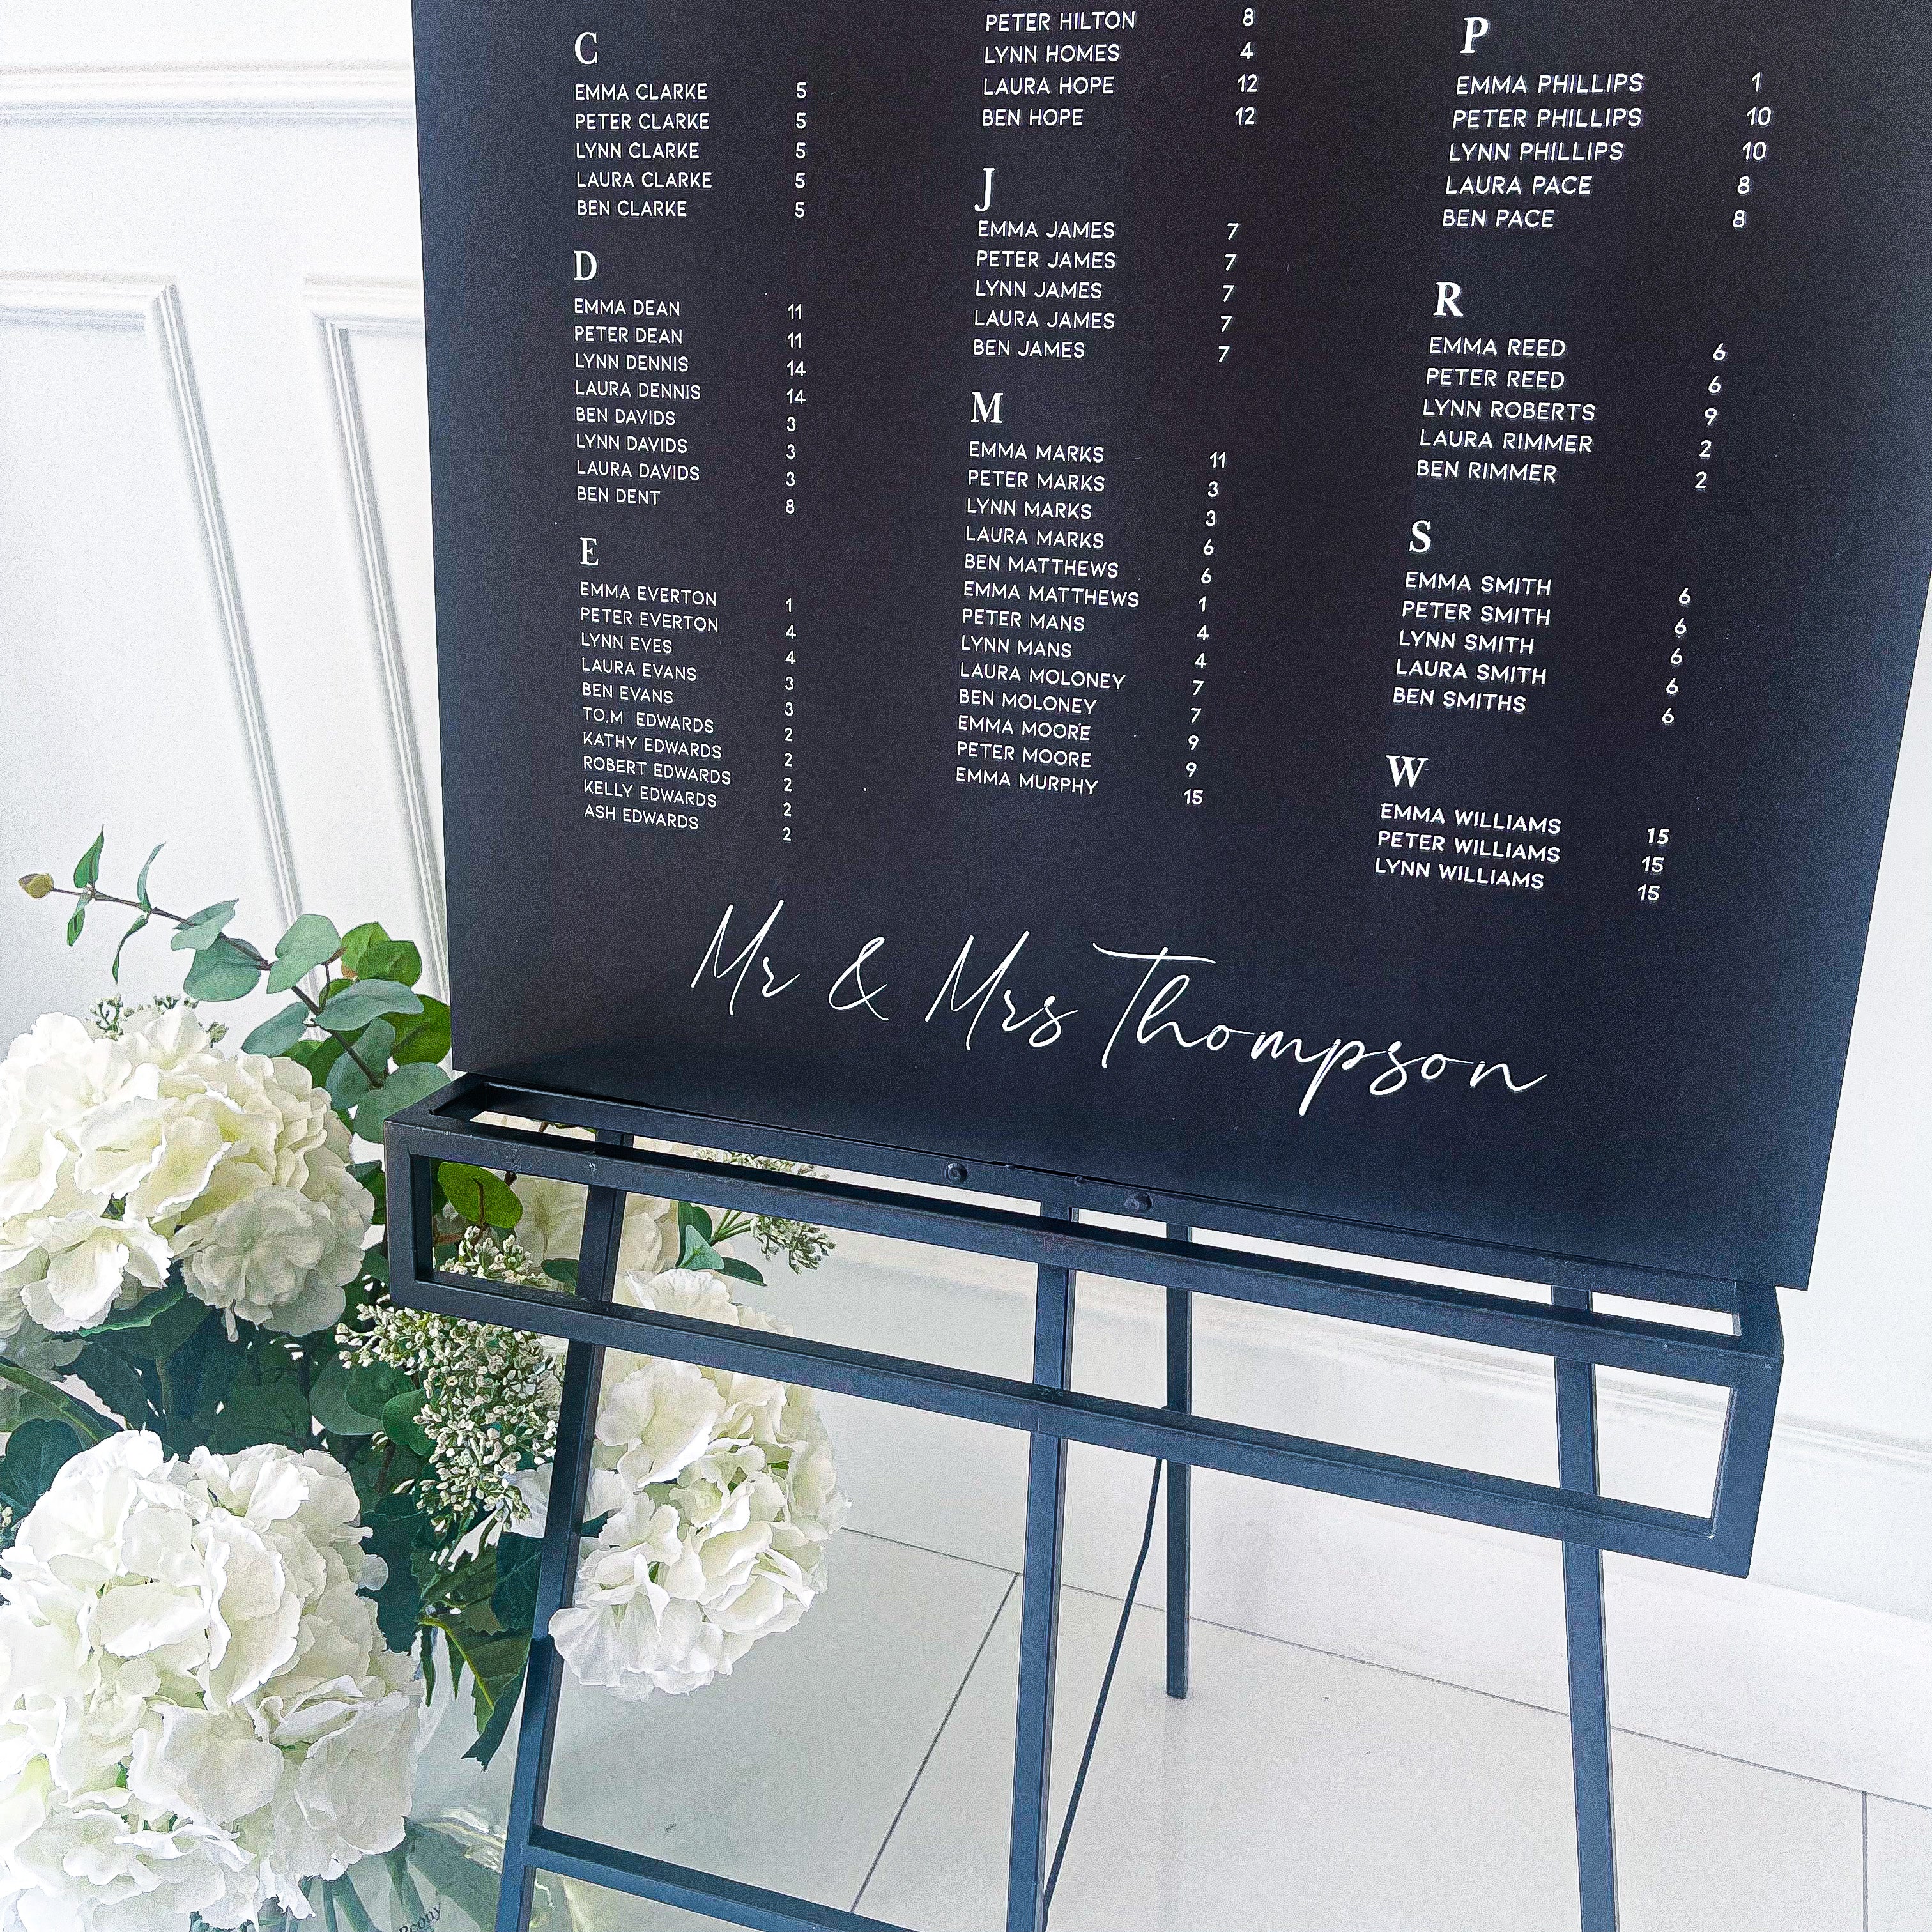 C
EMMA CLARKE 5
PETER CLARKE 5
LYNN CLARKE 5
LAURA CLARKE 5
BEN CLARKE 5
D
EMMA DEAN 11
PETER DEAN 11
LYNN DENNIS 14
LAURA DENNIS 14
BEN DAVIDS 3
LYNN DAVIDS 3
LAURA DAVIDS 3
BEN DENT 8
E
EMMA EVERTON 1
PETER EVERTON 4
LYNN EVES 4
LAURA EVANS 3
BEN EVANS 3
TO.M EDWARDS 2
KATHY EDWARDS 2
ROBERT EDWARDS 2
KELLY EDWARDS 2
ASH EDWARDS 2
PETER HILTON 8
LYNN HOMES 4
LAURA HOPE 12
BEN HOPE 12
J
EMMA JAMES 7
PETER JAMES 7
LYNN JAMES 7
LAURA JAMES 7
BEN JAMES 7
M
EMMA MARKS 11
PETER MARKS 3
LYNN MARKS 3
LAURA MARKS 6
BEN MATTHEWS 6
EMMA MATTHEWS 1
PETER MANS 4
LYNN MANS 4
LAURA MOLONEY 7
BEN MOLONEY 7
EMMA MOORE 9
PETER MOORE 9
EMMA MURPHY 15
P
EMMA PHILLIPS 1
PETER PHILLIPS 10
LYNN PHILLIPS 10
LAURA PACE 8
BEN PACE 8
R
EMMA REED 6
PETER REED 6
LYNN ROBERTS 9
LAURA RIMMER 2
BEN RIMMER 2
S
EMMA SMITH 6
PETER SMITH 6
LYNN SMITH 6
LAURA SMITH 6
BEN SMITHS 6
W
EMMA WILLIAMS 15
PETER WILLIAMS 15
LYNN WILLIAMS 15
Mr & Mrs Thompson
Peony